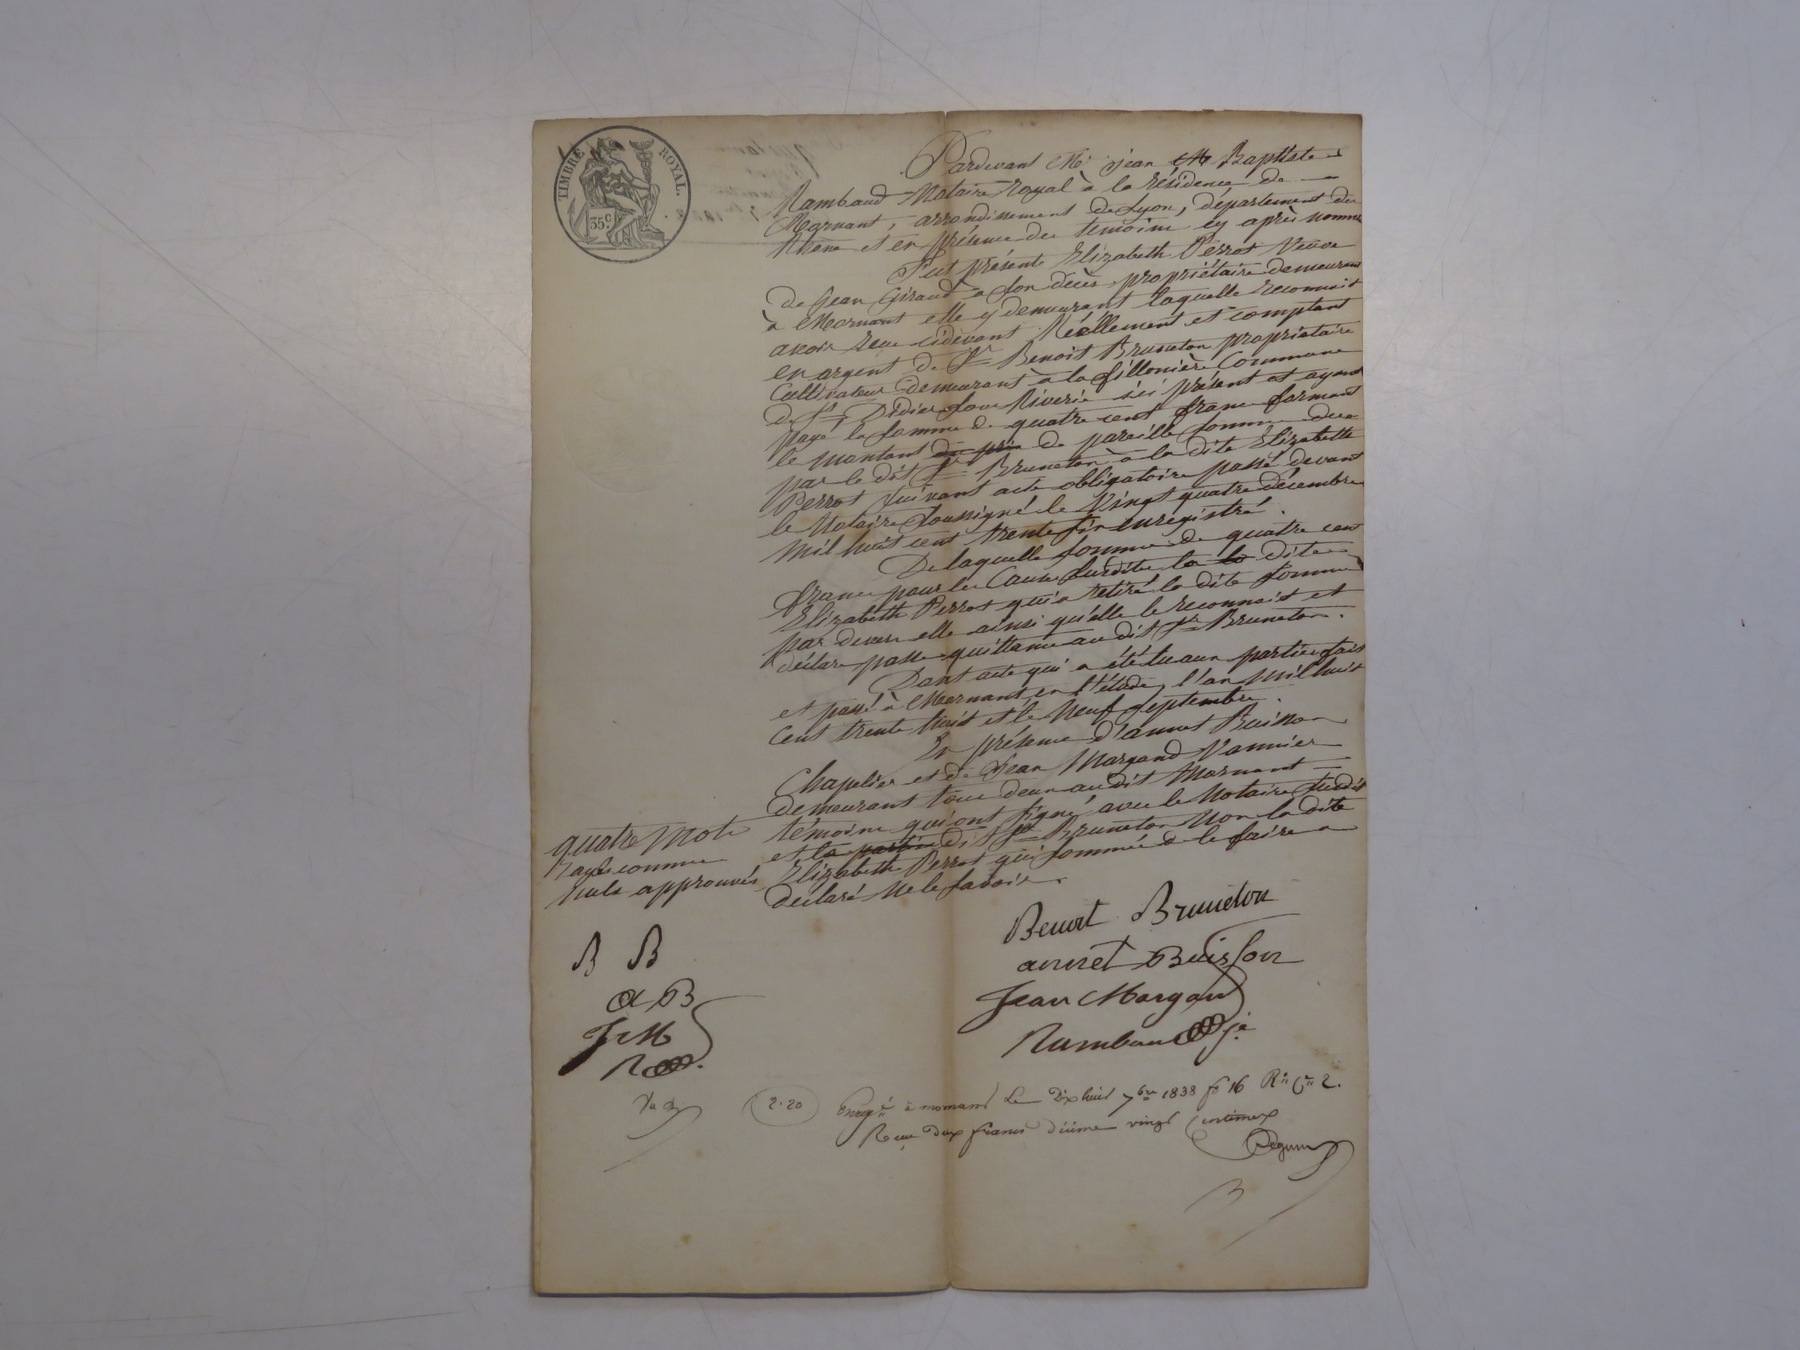 TIMBRE ROYAL.
35 c.
Pardevant Me jean M Baptiste
Rambaud Notaire royal à la résidence de
Mornant, arrondissement de Lyon, département du
Rhone et en présence des temoins cy après nommés
Fut présente Elizabeth Perrot Veuve
de Jean Giraud a son décès propriétaire demeurant
à Mornant elle y demeurant laquelle reconnoit
avoir reçu cidevant Réellement et comptant
en argent de Sr Benoit Bruneton propriétaire
Cultivateur demeurant à la fillonière Commune
de St Didier sous Riverie ici présent et ayant
payé la somme de quatre cent francs formant
le montant du prix de pareille somme due
par le dit Sr Bruneton à la dite Elizabeth
Perrot suivant acte obligatoire passé devant
le Notaire soussigné le Vingt quatre décembre
mil huit cent trente six enregistré.
De laquelle somme de quatre cent
francs pour les Causes susdites la la dite
Elizabeth Perrot qui a retiré la dite somme
par devers elle ainsi qu'elle le reconnoit et
déclare passe quittance audit Sr Bruneton.
Dont acte qui a été lu aux parties fait
et passé à Mornant en l'étude, l'an mil huit
cent trente huit et le Neuf Septembre.
En présence d'annet Buisson
Chapelier et de Jean Margand Vannier
demeurant tous deux audit Mornant
témoins qui ont signé avec le Notaire susdit
et la partie dit Sr Bruneton Non la dite
Elizabeth Perrot qui sommée de le faire a
déclaré ne le savoir.
quatre mots
rayés comme
nuls approuvés
Benoit Bruneton
annet Buisson
Jean Margand
Rambaud
B B
a B
J M
R
2.20
Enregé à mornant Le Dix huit 7bre 1838 fo 16 Ro Ces 2.
Reçu deux francs décime vingt centimes